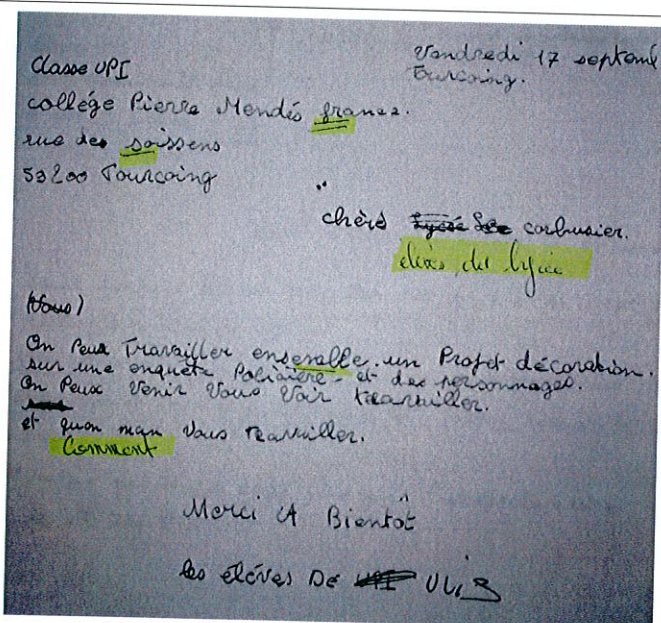 Vendredi 17 septemb
Tourcoing.
Classe UPI
collége Pierre Mendés france.
rue des soissens
59200 Tourcoing
chèrs Lycée corbusier.
élèves du lycée
(Vous)
On Peux Travailler ensemble un Projet décoration.
sur une enquète Policière et des personnages.
On Peux Venir Vous Voir travailler.
et quon man Vous travailler.
Comment
Merci A Bientôt
les élèves De UPI ULIS